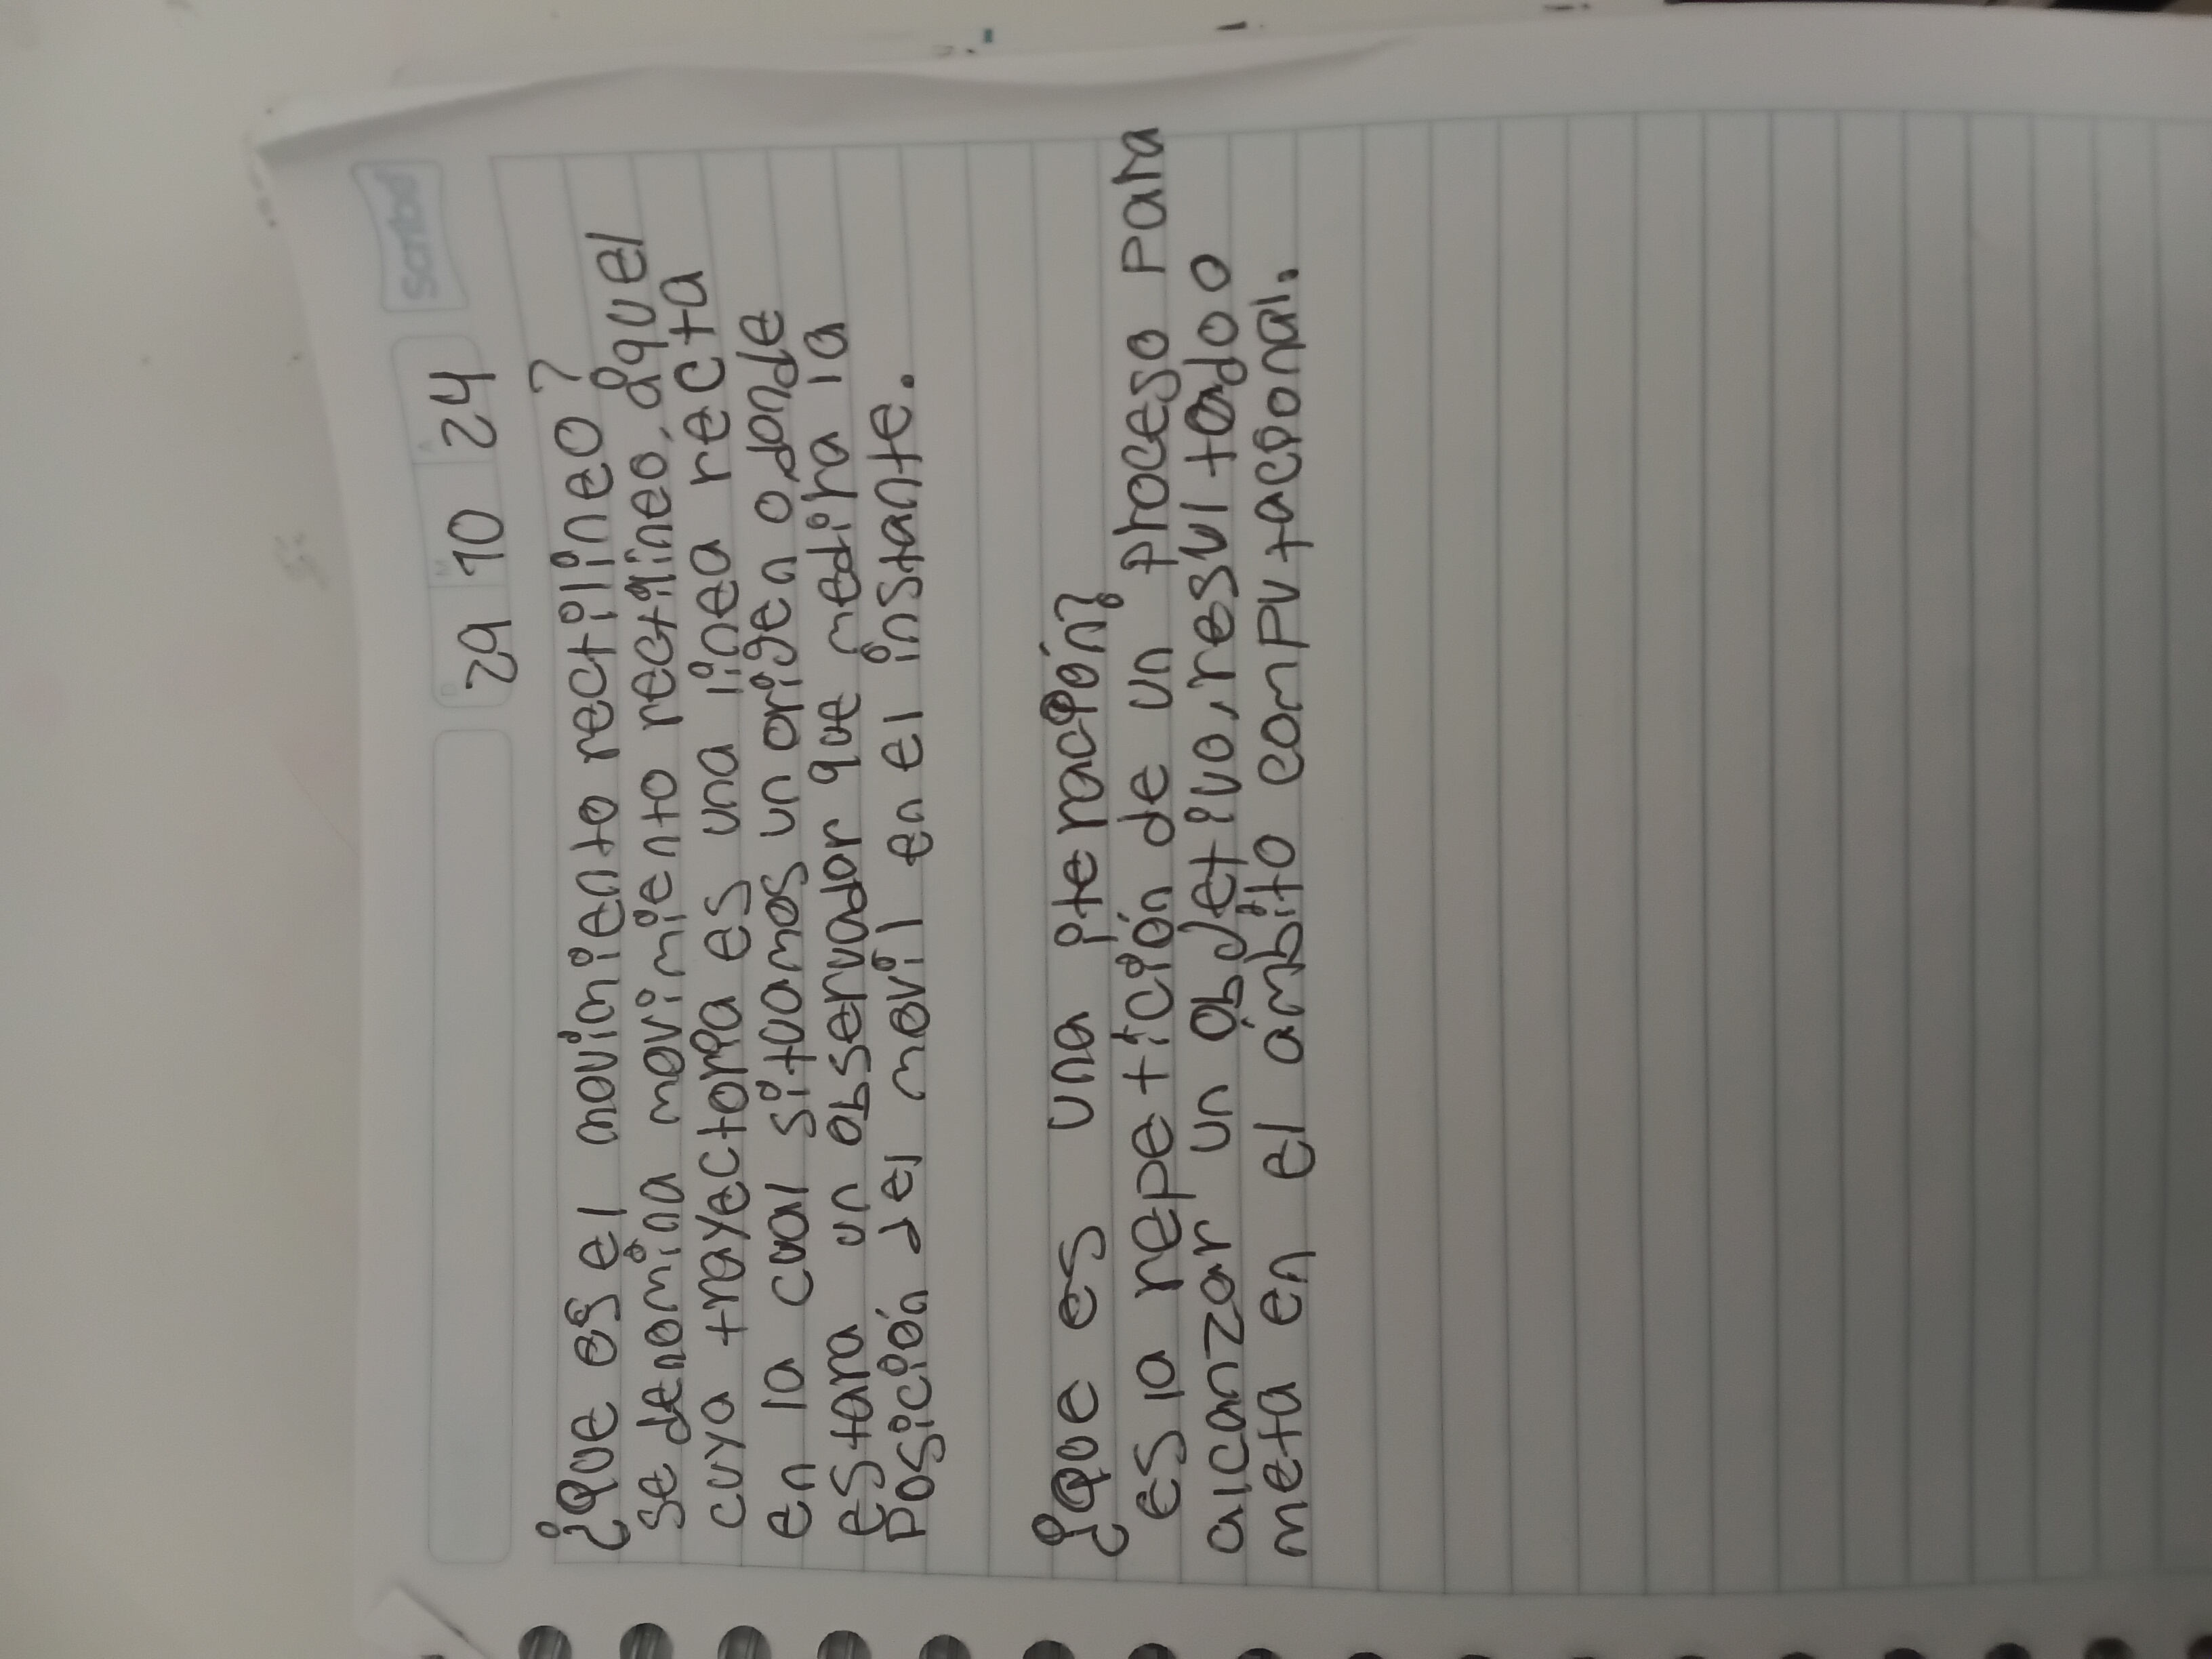 Scribe
D M A
29 10 24
¿Que es el movimiento rectilineo?
se denomina movimiento rectilineo, aquel
cuya trayectoria es una linea recta
en la cual situamos un origen o donde
estara un observador que medira la
posición del movil en el instante.
¿Que es una iteración?
es la repetición de un proceso para
alcanzar un objetivo, resultado o
meta en el ámbito computacional.